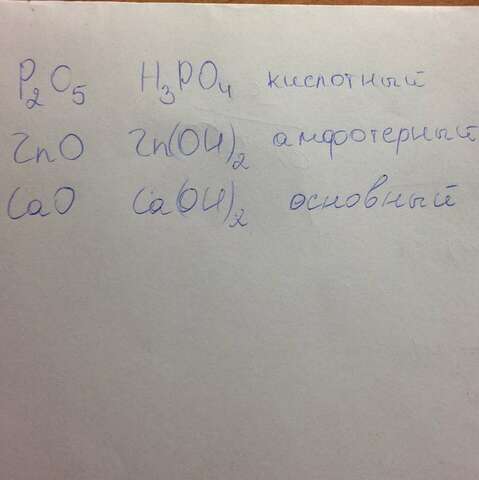 P₂O₅ H₃PO₄ кислотный
ZnO Zn(OH)₂ амфотерный
CaO Ca(OH)₂ основный